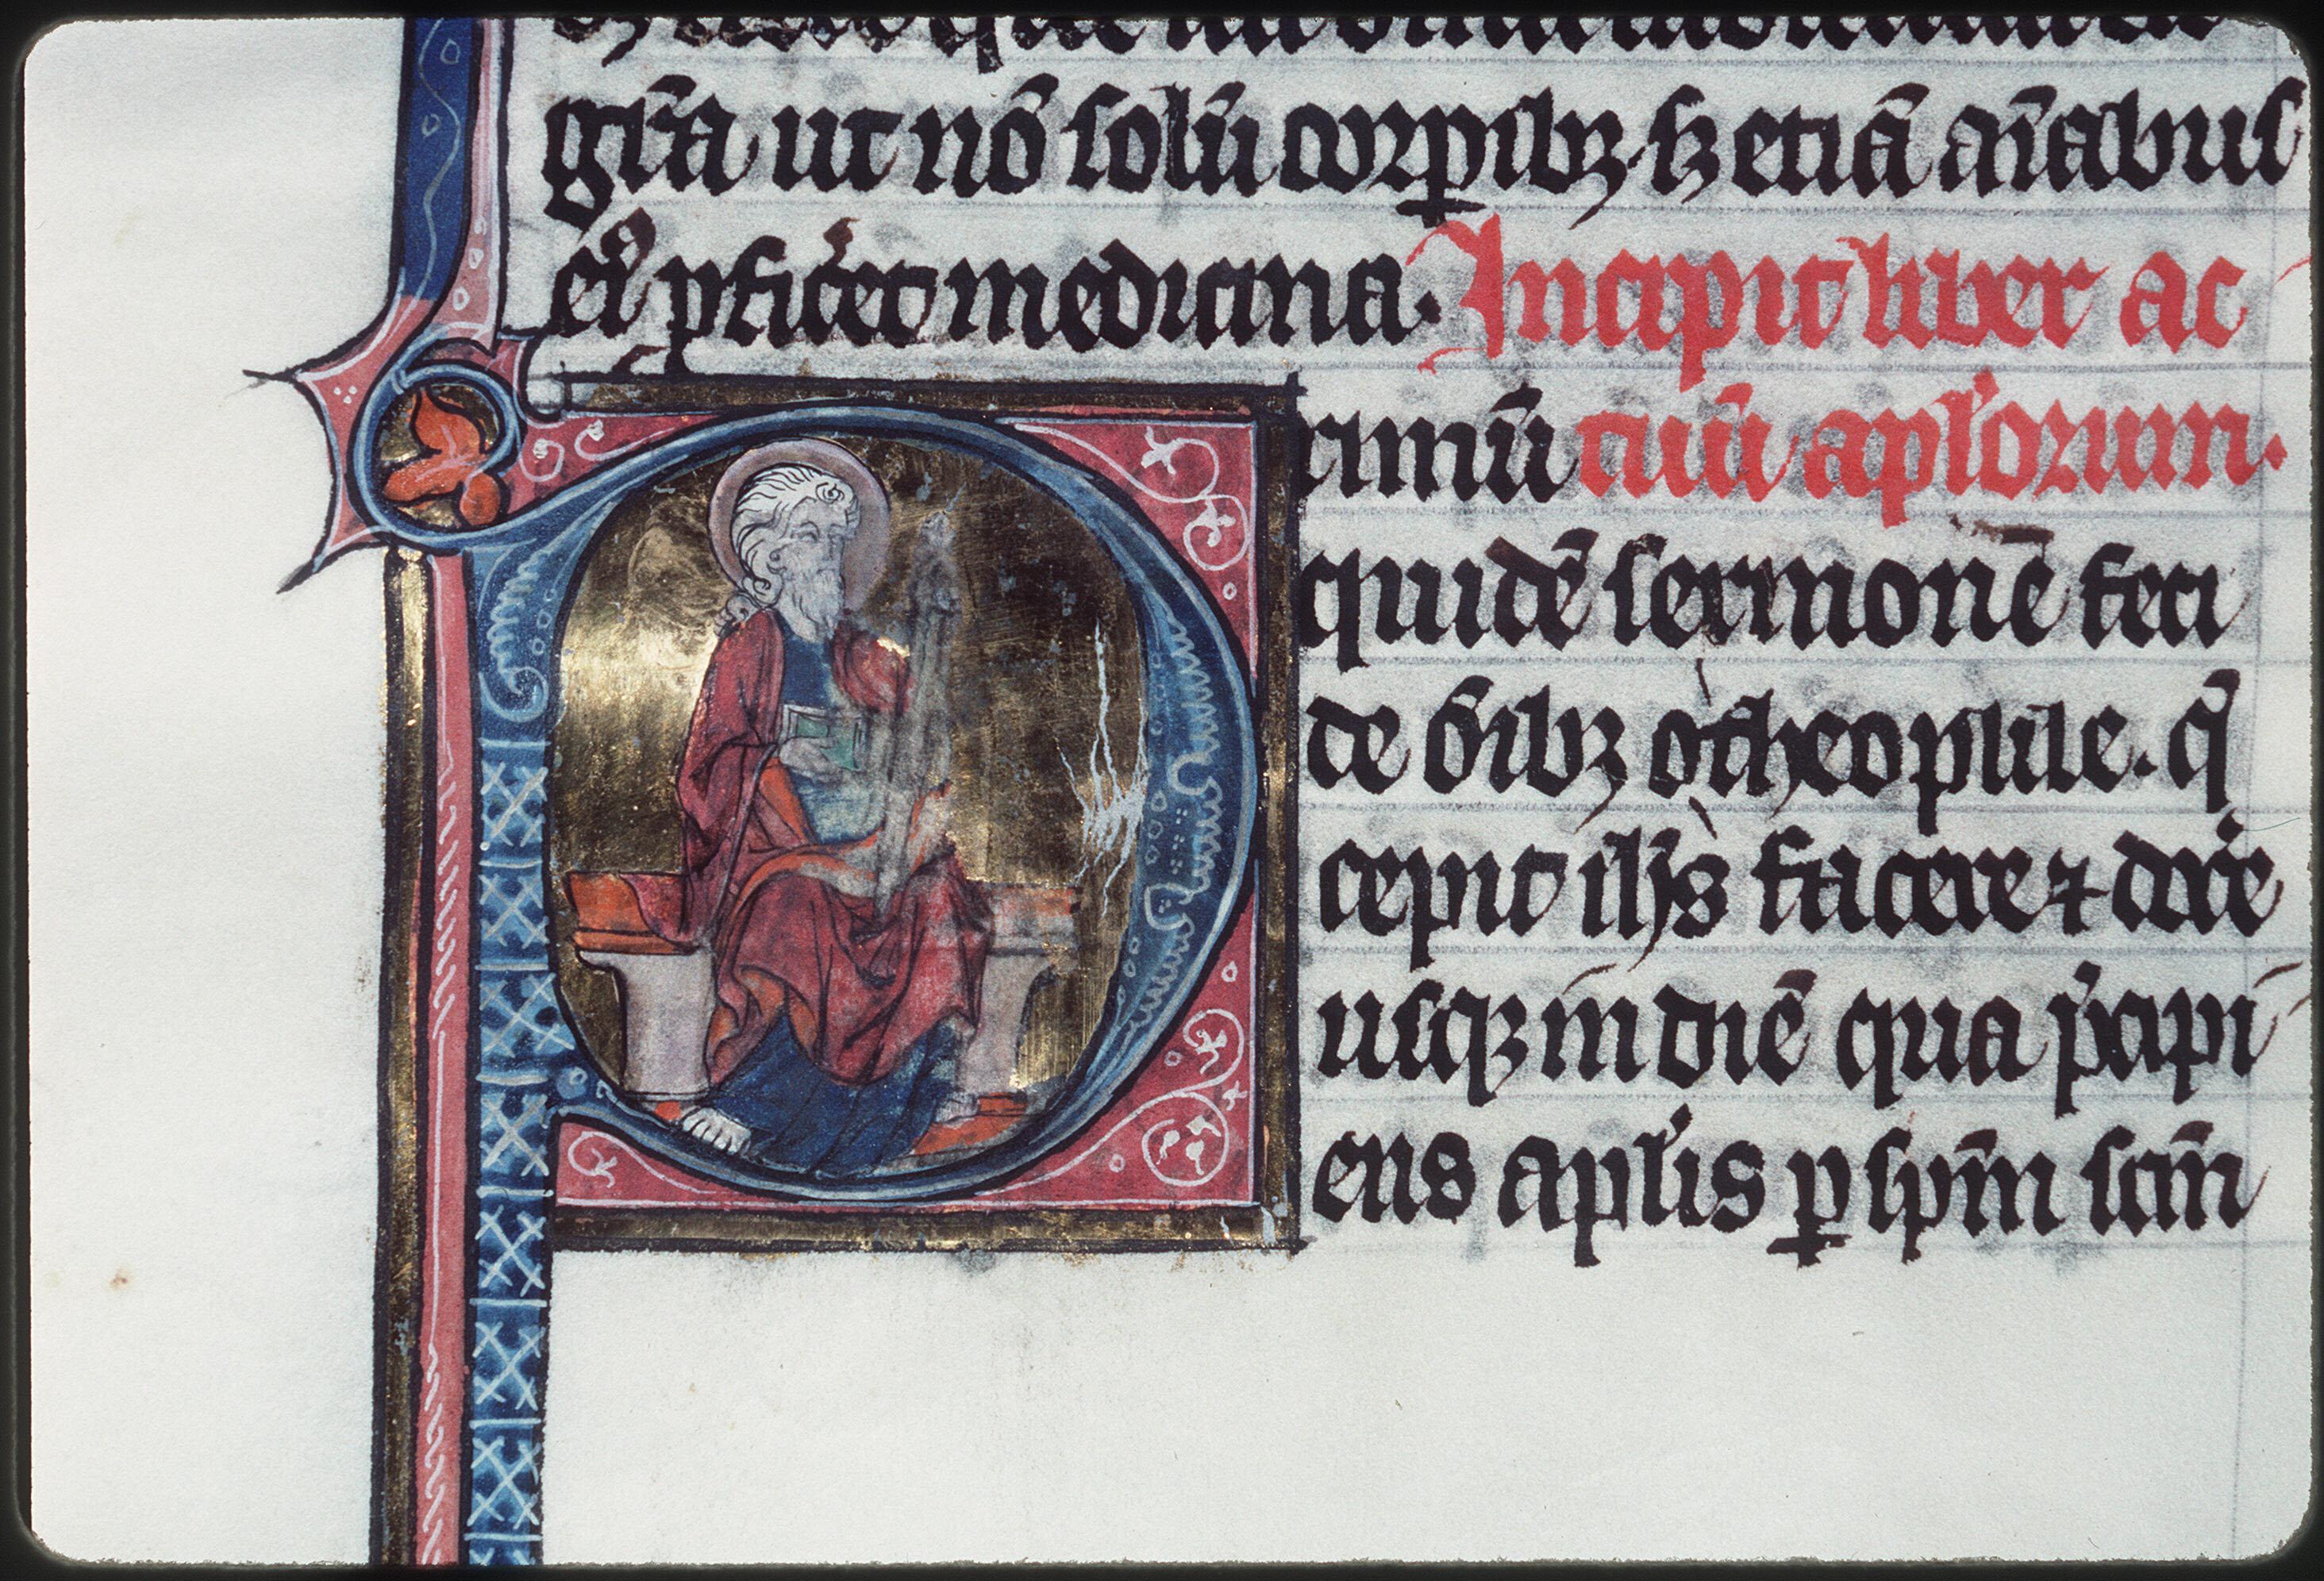 gr̄a ut nō solū corpibꝫ. sꝫ etiā aīabus
eiꝰ ꝓficeret medicina. Incipit liber ac
Primū tuū apl'orum.
quidē sermonē feci
de oīibꝫ o theophile. q̄
cepit ih̄s facere ⁊ docˀe
usqꝫ in diē qua p̄cipi
ens apl'is ꝑ sp̄m scm̄